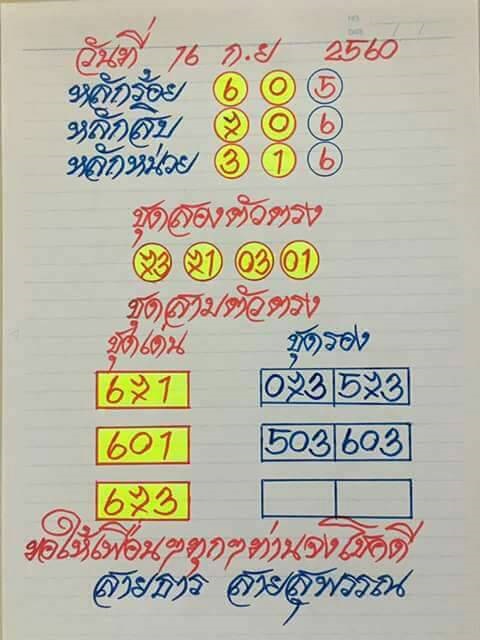 วันที่ 16 ก.ย 2560
หลักร้อย 6 0 5
หลักสิบ 7 0 6
หลักหน่วย 3 1 6
ชุดสองตัวตรง
73 71 03 01
ชุดสามตัวตรง
ชุดเด่น ชุดรอง
671 073 573
601 503 603
673
ขอให้เพื่อนๆทุกๆท่านจงโชคดี
สายธาร สายสุพรรณ